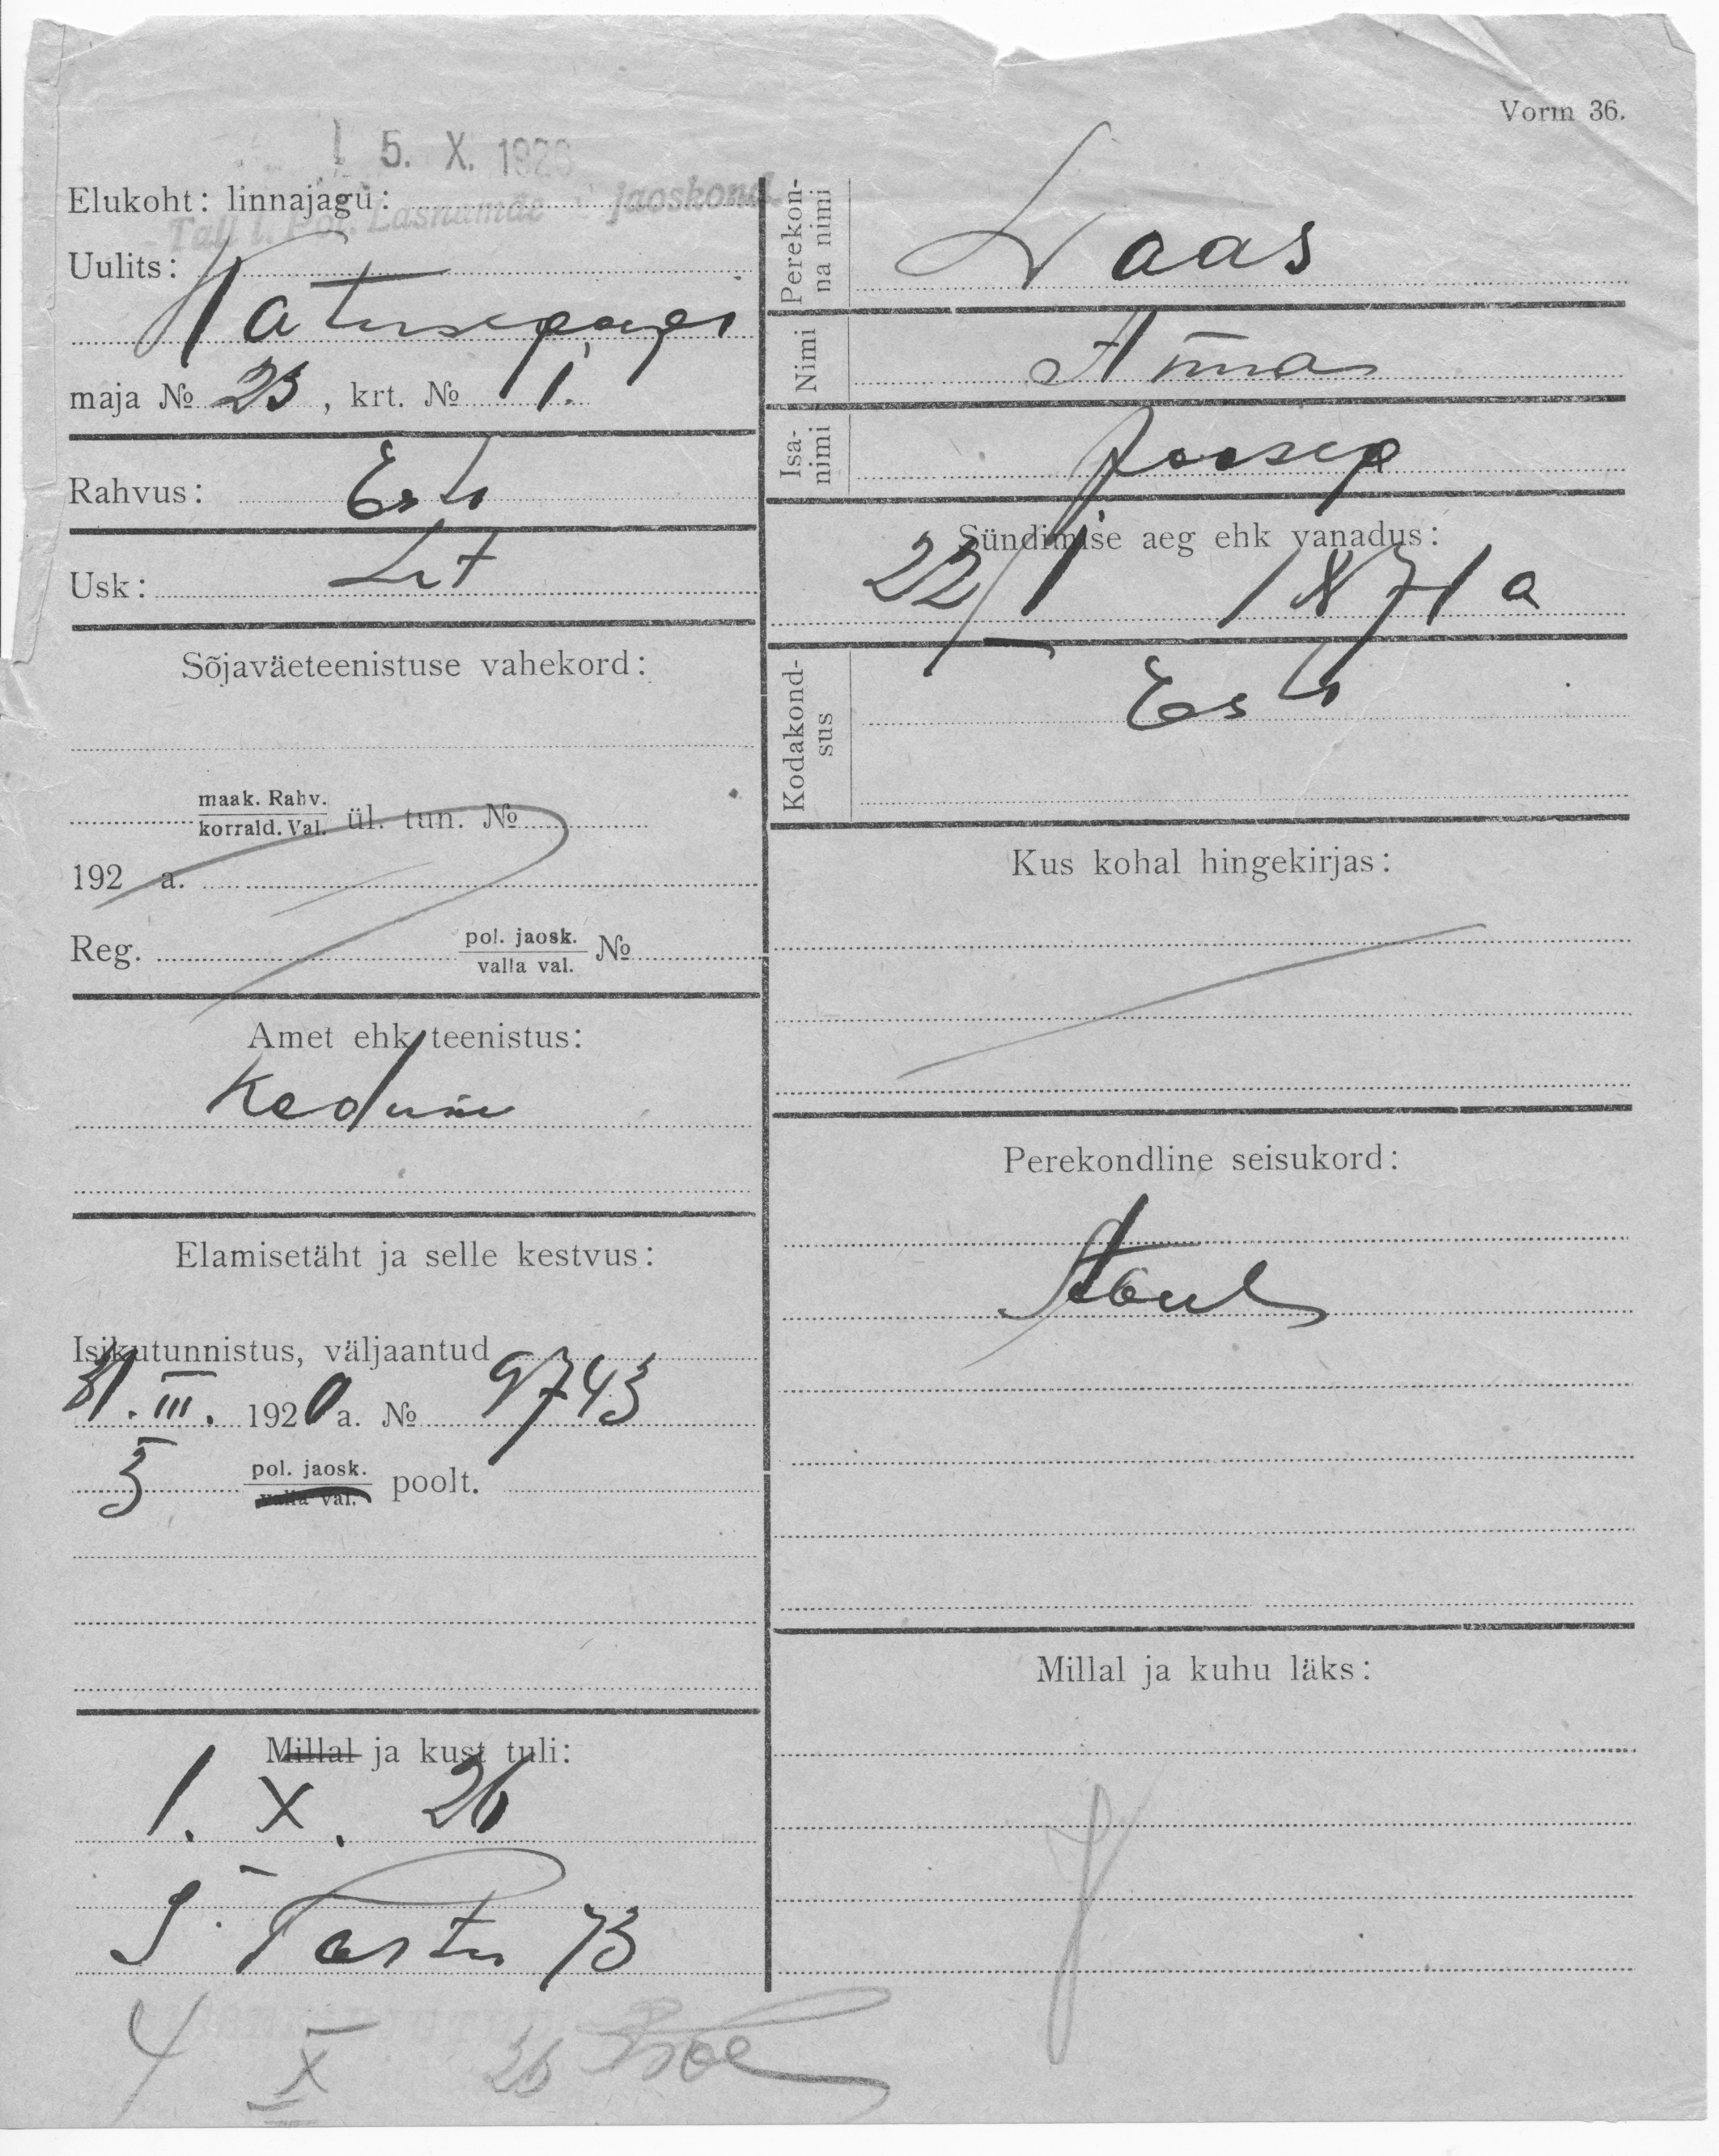 Vorm 36.
5. X. 1926
Elukoht: linnajagu:
Tall. l. Pol. Lasnamäe jaoskond.
Uulits:
maja № 23, krt. № 1.
Rahvus: Esti
Usk: Lut
Sõjaväeteenistuse vahekord:
maak. Rahv.
korrald. Val. ül. tun. №
192 a.
Reg. pol. jaosk. №
valla val.
Amet ehk teenistus:
Elamisetäht ja selle kestvus:
Isikutunnistus, väljaantud
31. III. 1920 a. № 9743
3 pol. jaosk. poolt.
valla val.
Millal ja kust tuli:
1. X. 26
S. Tartu 73
4 X 26
Perekonna nimi
Laas
Nimi
Anna
Isanimi
Joosep
Sündimise aeg ehk vanadus:
22/I 1871 a
Kodakondsus
Esti
Kus kohal hingekirjas:
Perekondline seisukord:
Millal ja kuhu läks: